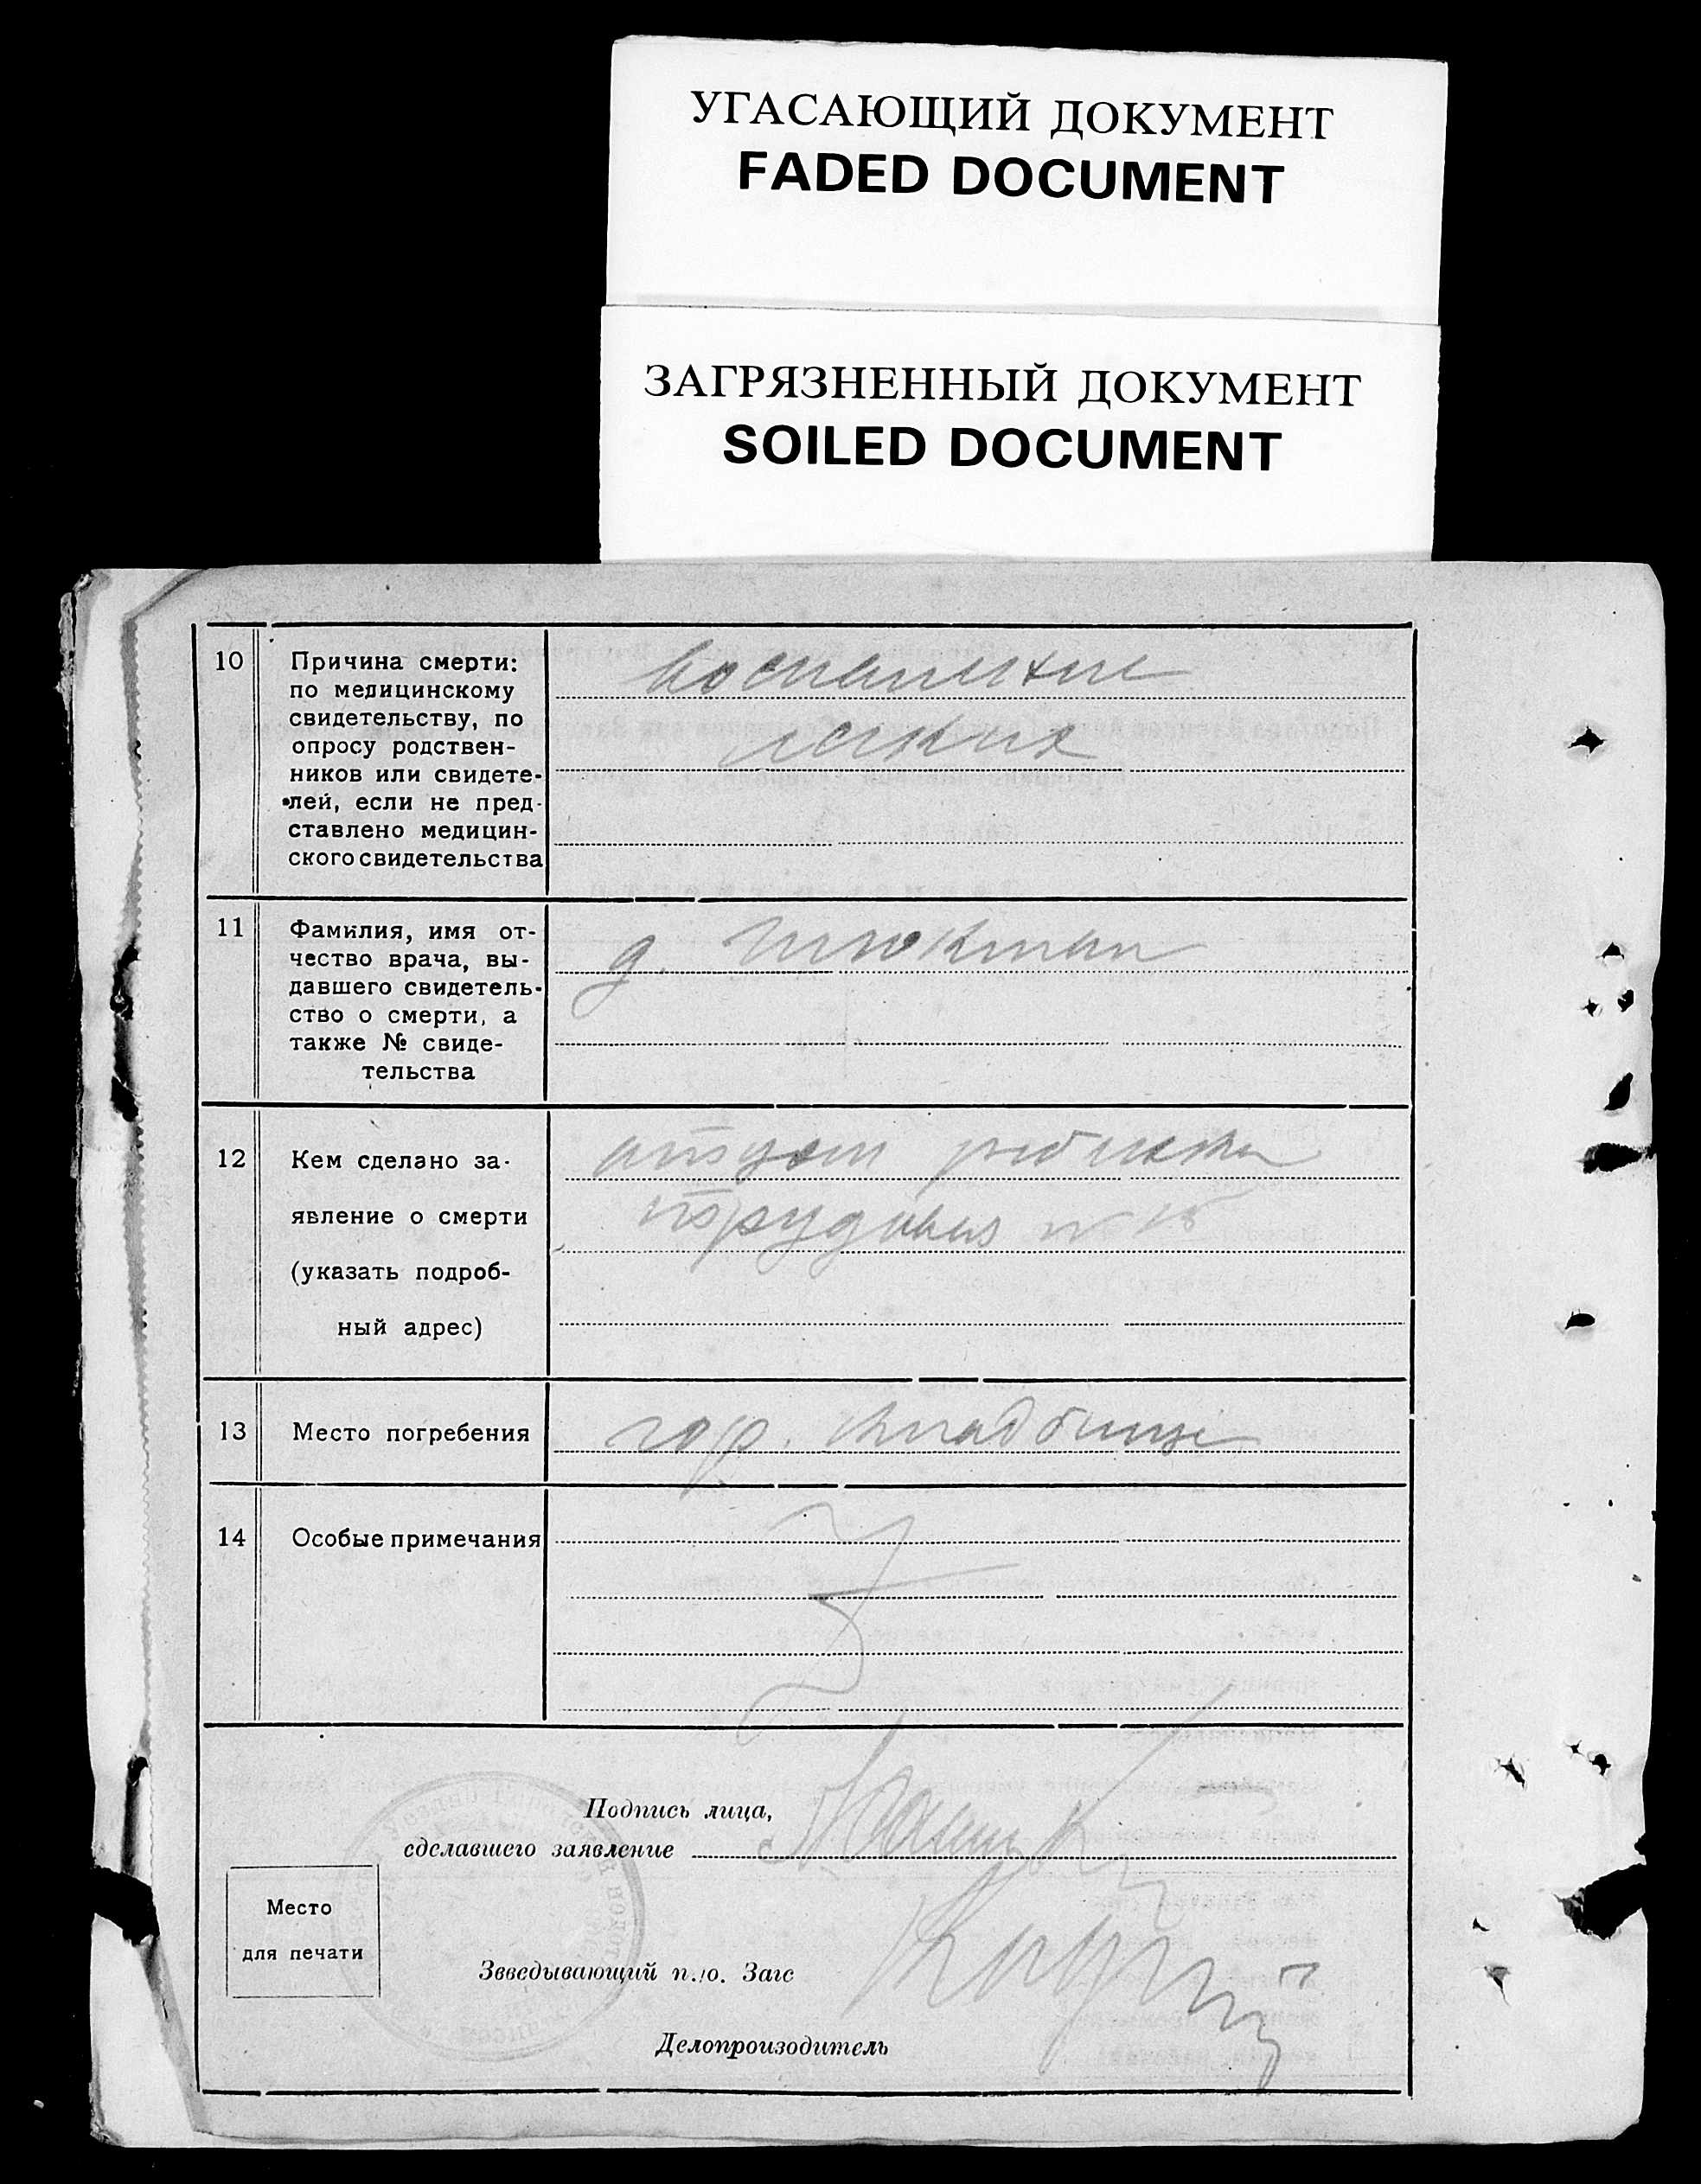 УГАСАЮЩИЙ ДОКУМЕНТ
FADED DOCUMENT
ЗАГРЯЗНЕННЫЙ ДОКУМЕНТ
SOILED DOCUMENT
10 Причина смерти:
по медицинскому
свидетельству, по
опросу родствен-
ников или свидете-
лей, если не пред-
ставлено медицин-
ского свидетельства
воспаление
легких
11 Фамилия, имя от-
чество врача, вы-
давшего свидетель-
ство о смерти, а
также № свиде-
тельства
д.
12 Кем сделано за-
явление о смерти
(указать подроб-
ный адрес)
отцом ребенка
13 Место погребения
гор. кладбище
14 Особые примечания
Подпись лица,
сделавшего заявление
Место
для печати
Зведывающий п./о. Загс
Делопроизодитель